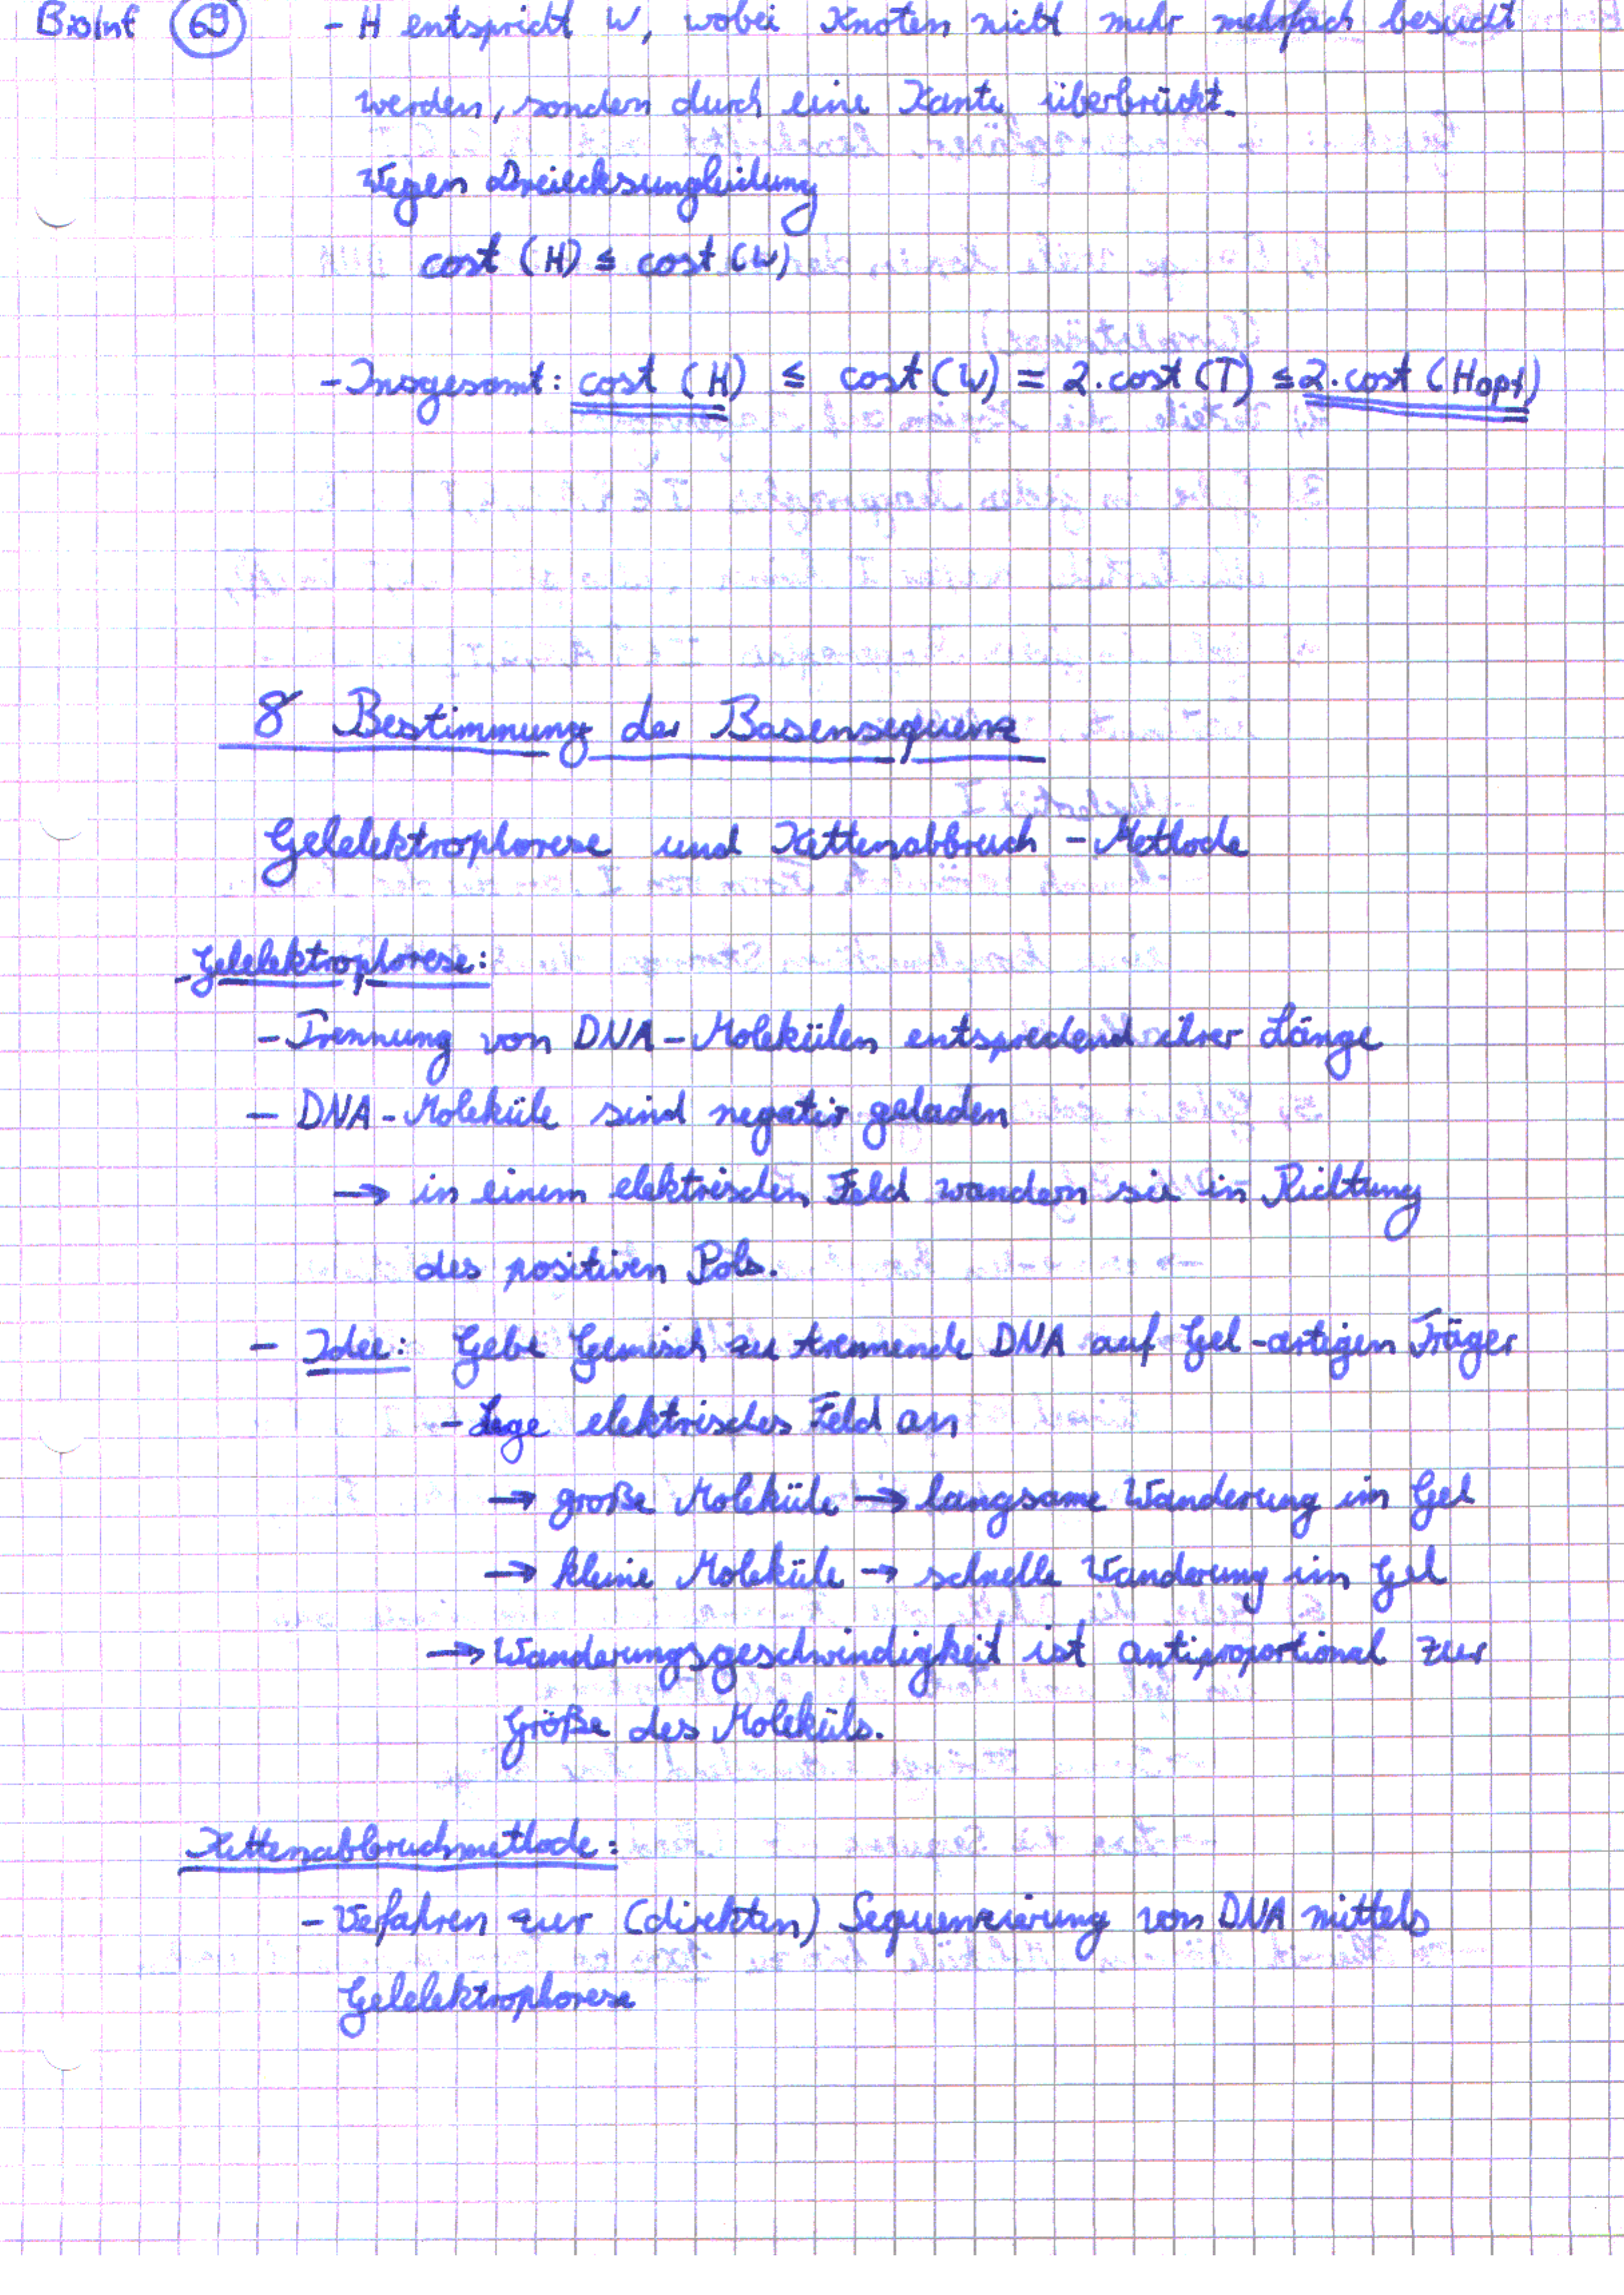 BioInf 69 - H entspricht W, wobei Knoten nicht mehr mehrfach besucht
werden, sondern durch eine Kante überbrückt.
Wegen Dreiecksungleichung
cost (H) ≤ cost (W)
- Insgesamt: cost (H) ≤ cost (W) = 2·cost (T) ≤ 2·cost (Hopt)
8 Bestimmung der Basensequenz
Gelelektrophorese und Kettenabbruch-Methode
- Gelelektrophorese:
- Trennung von DNA-Molekülen entsprechend ihrer Länge
- DNA-Moleküle sind negativ geladen
→ in einem elektrischen Feld wandern sie in Richtung
des positiven Pols.
- Idee: Gebe Gemisch zu trennende DNA auf Gel-artigen Träger
- Lege elektrisches Feld an
→ große Moleküle → langsame Wanderung im Gel
→ kleine Moleküle → schnelle Wanderung im Gel
→ Wanderungsgeschwindigkeit ist antiproportional zur
Größe des Moleküls.
Kettenabbruchmethode:
- Verfahren zur (direkten) Sequenzierung von DNA mittels
Gelelektrophorese